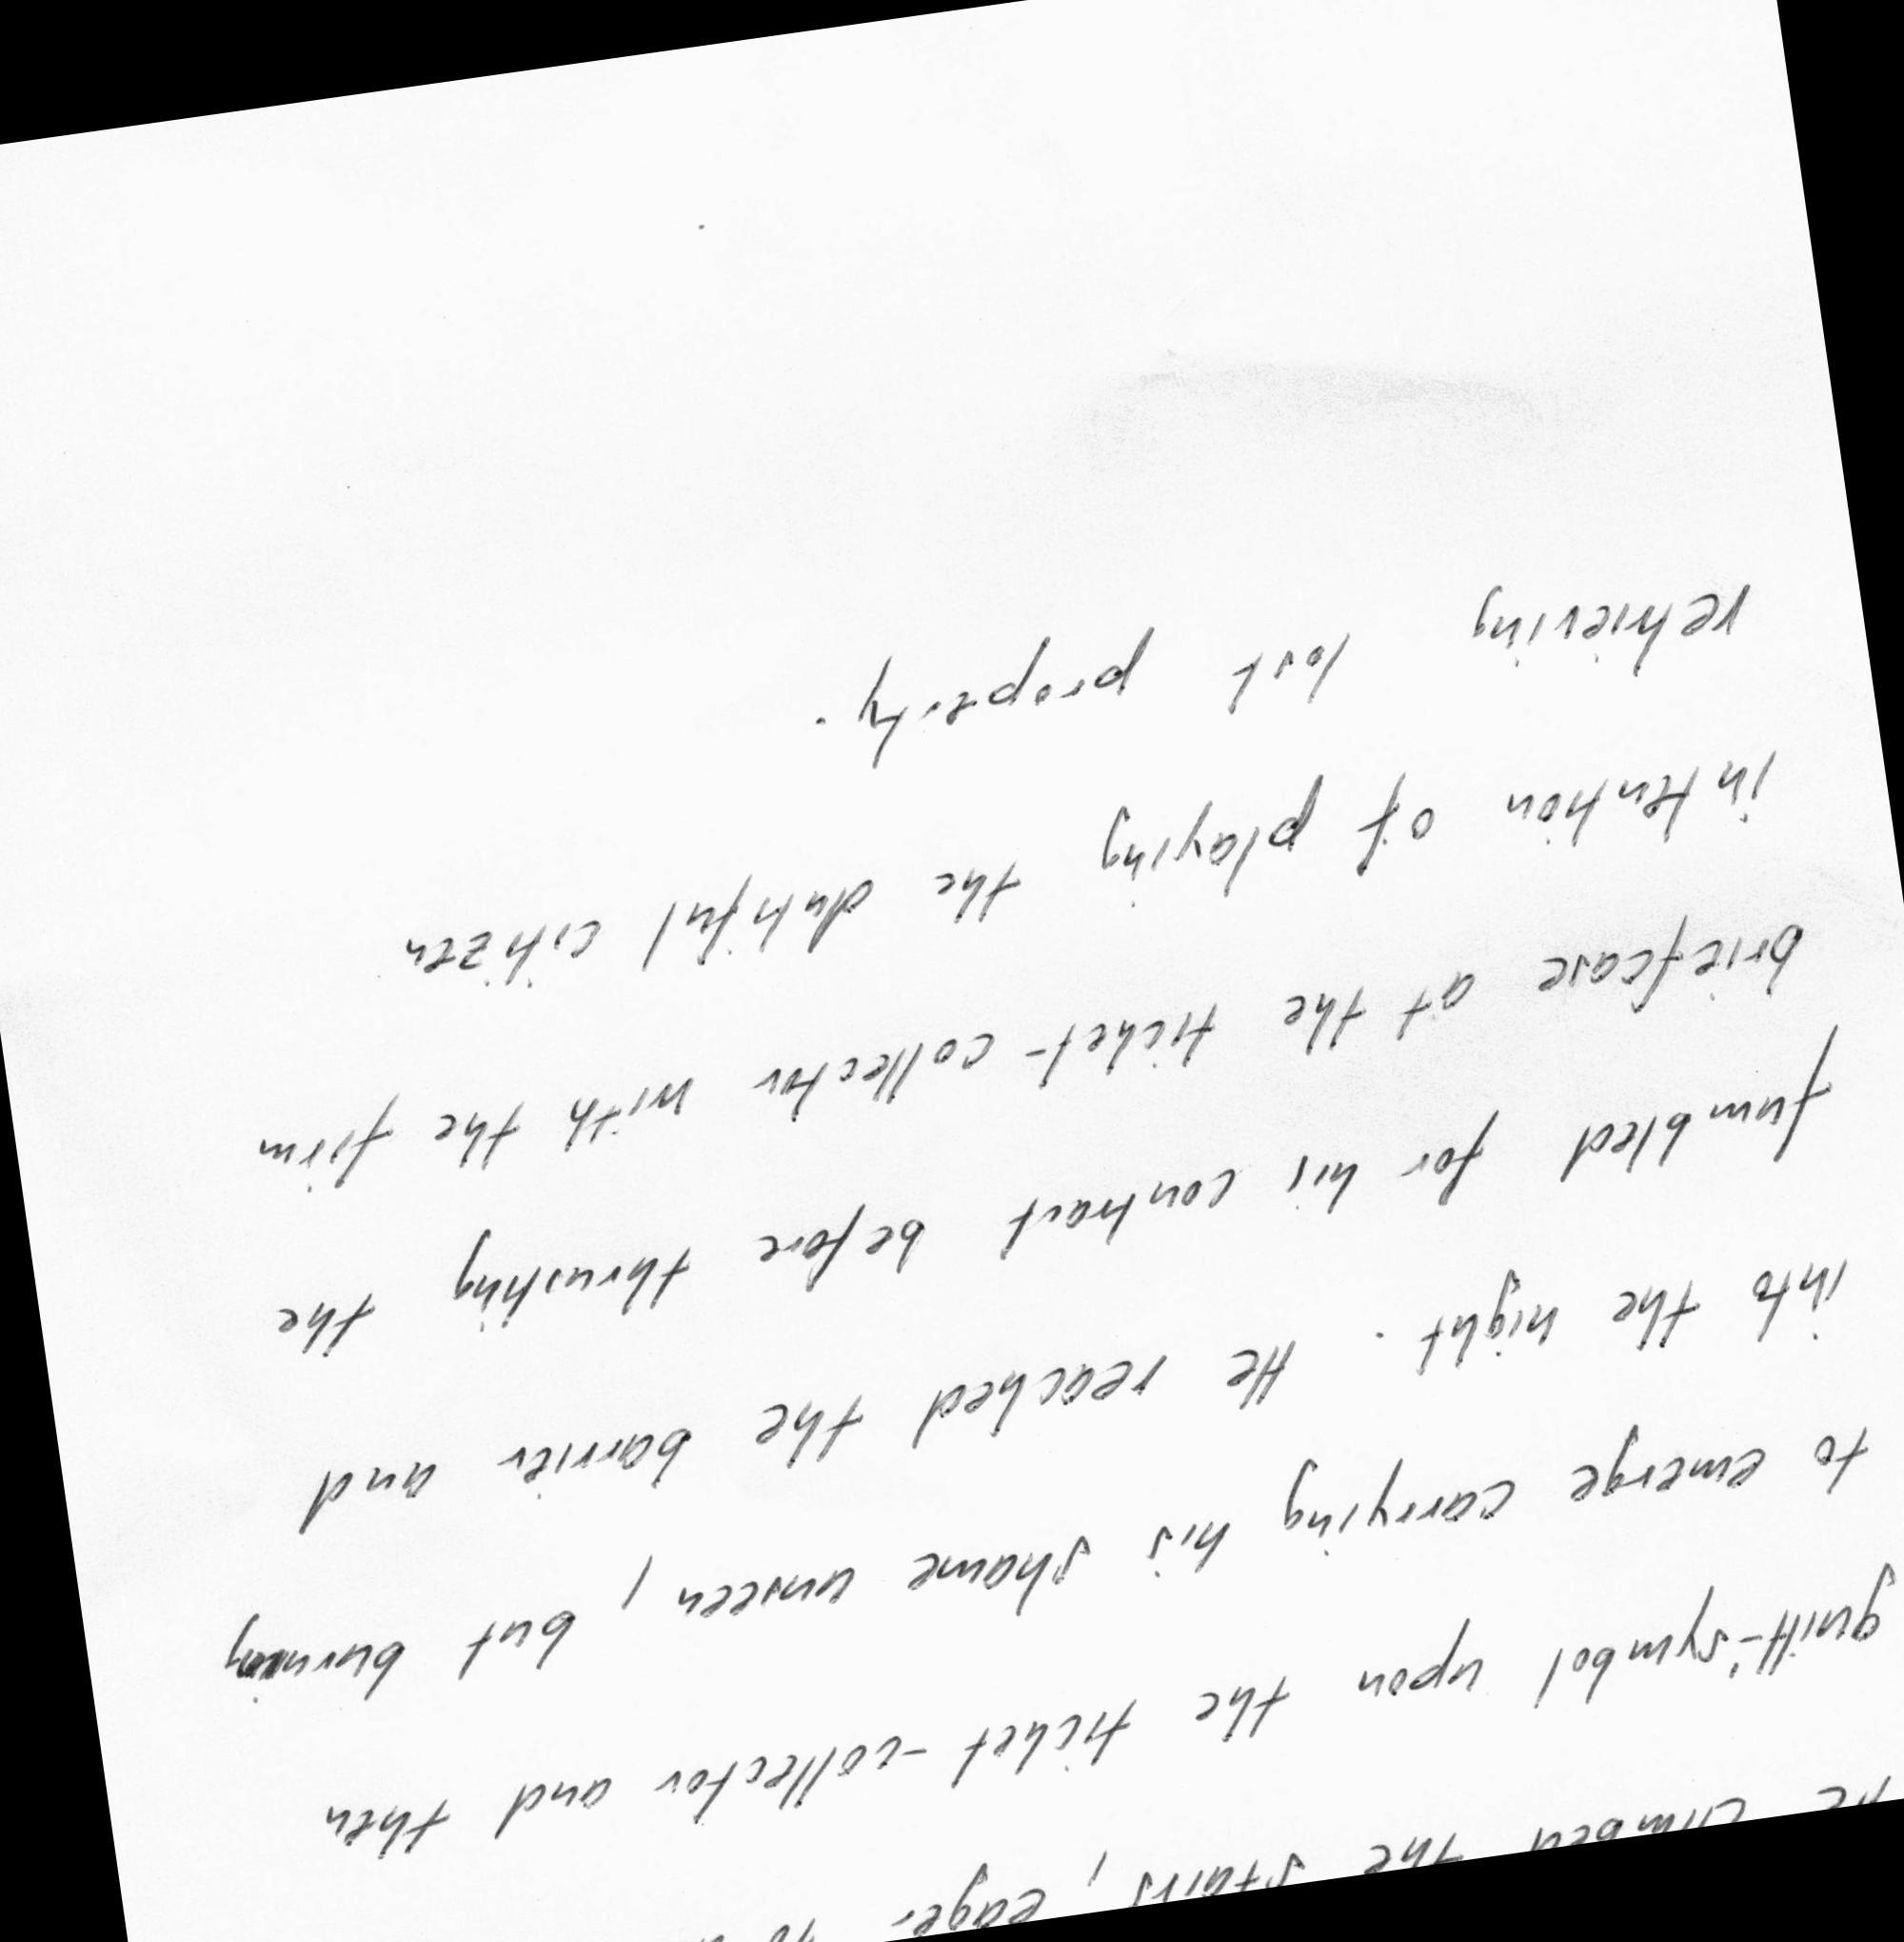 he climbed the stairs, eager to
guilt-symbol upon the ticket-collector and then
to emerge carrying his shame unseen, but burning
into the night. He reached the barrier and
fumbled for his contract before thrusting the
briefcase at the ticket-collector with the firm
intention of playing the dutiful citizen
retrieving lost property.